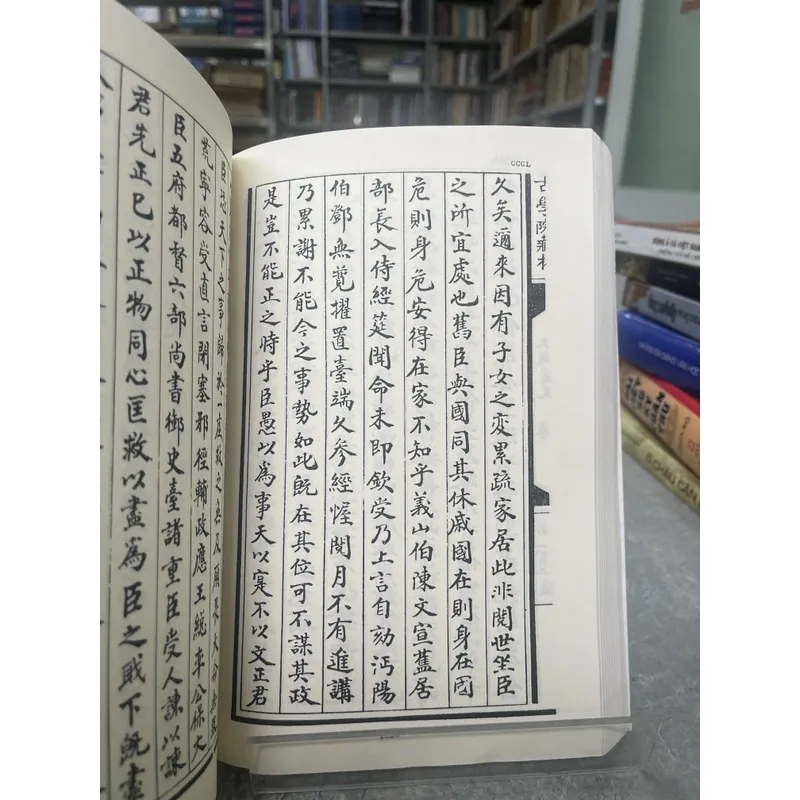 CCCL
古學院藏本
久矣邇來因有子女之変累疏家居此非閱世坐臣
之所宜處也舊臣與國同其休戚國在則身在国
危則身危安得在家不知乎義山伯陳文宣舊居
部長入侍經筵聞命未即欽受乃上言自劾沔陽
伯鄧無競擢置臺端久参經幄閱月不有進講
乃累謝不能今之事勢如此旣在其位可不謀其政
是豈不能正之時乎臣愚以為事天以寔不以文正君
臣恐天下之事歸於
荒寧容受直言閉塞邪徑輔政應王總率公保大
臣五府都督六部尚書御史臺諸重臣受人諫以諫
君先正己以正物同心匡救以盡為臣之職下旣盡
ĐÔNG Á VÀ VIỆT NAM